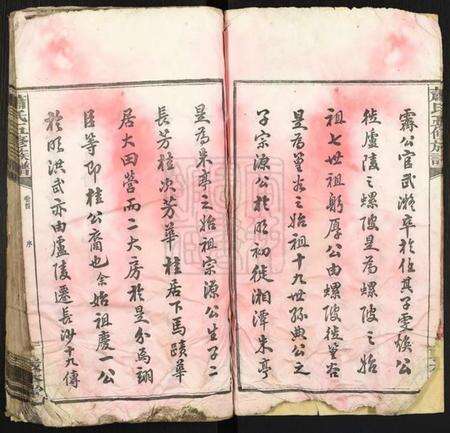 蕭氏五修族譜
霽公官武瀨卒於位其子雯煥公
徙盧陵之螺陂是為螺陂之始
祖七世祖躬厚公由螺陂徙
是為 之始祖十九世孫典公之
子宗源公於明初徙湘潭朱亭
是為朱亭之始祖宗源公生子二
長芳桂次芳華桂居下馬蹟華
居大田營而二大房於是分焉翊
臣等即桂公裔也余始祖慶一公
於明洪武亦由盧陵遷長沙十九傳
蕭氏五修族譜
卷首
序